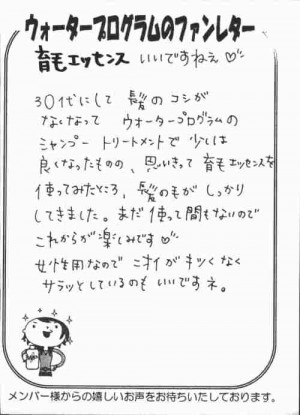 ウォータープログラムのファンレター
育毛エッセンス いいですねぇ♡
30代にして 髪の コシが
なくなって ウォータープログラムの
シャンプー トリートメントで 少しは
良くなったものの、思いきって 育毛エッセンスを
使ってみたところ、髪の毛が しっかり
してきました。まだ 使って間もないので
これからが楽しみです♡
女性用なので ニオイが キツくなく
サラッとしているのも いいですネ。
メンバー様からの嬉しいお声をお待ちいたしております。